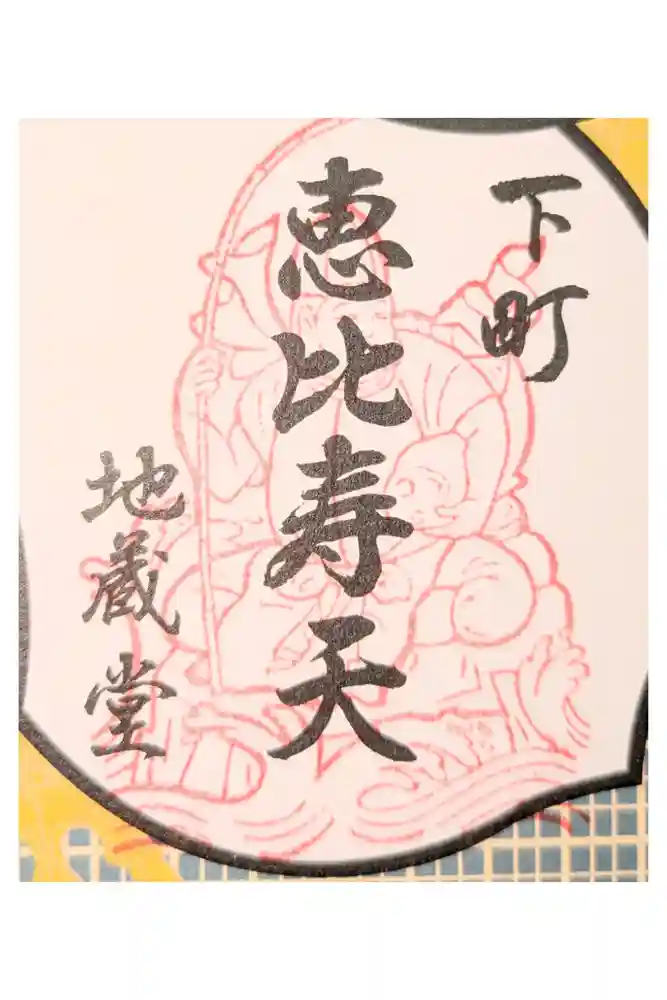 下町
恵比寿天
地蔵堂